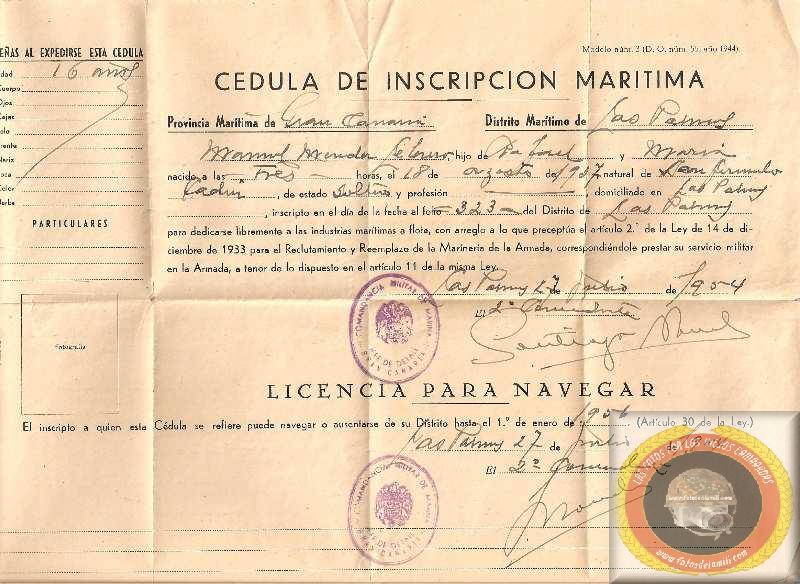 Modelo núm. 3 (D. O. núm. 55, año 1944).
EÑAS AL EXPEDIRSE ESTA CEDULA
dad 16 años
Cuerpo
Ojos
Cejas
elo
rente
Nariz
oca
Color
arba
PARTICULARES
Fotografía
CEDULA DE INSCRIPCION MARITIMA
Provincia Marítima de Gran Canaria Distrito Marítimo de Las Palmas
Manuel Mendez hijo de Rafael y María
nacido a las tres horas, el 18 de agosto de 1937 natural de San Fernando
Cadiz, de estado soltero y profesión , domiciliado en Las Palmas
, inscripto en el día de la fecha al folio -323- del Distrito de Las Palmas
para dedicarse libremente a las industrias marítimas a flote, con arreglo a lo que preceptúa el artículo 2.° de la Ley de 14 de di-
ciembre de 1933 para el Reclutamiento y Reemplazo de la Marinería de la Armada, correspondiéndole prestar su servicio militar
en la Armada, a tenor de lo dispuesto en el artículo 11 de la misma Ley.
Las Palmas 27 de Julio de 1954
El 2° Comandante
Santiago
COMANDANCIA MILITAR DE MARINA
GRAN CANARIA
LICENCIA PARA NAVEGAR
El inscripto a quien esta Cédula se refiere puede navegar o ausentarse de su Distrito hasta el 1.° de enero de 1956 (Artículo 30 de la Ley.)
Las Palmas 27 de Julio de
El 2°
COMANDANCIA MILITAR DE MARINA
GRAN CANARIA
LAS FOTOS POR LOS PELOS CAMBIADOS
www.fotosdelamili.com
www.fotosdelamili.com